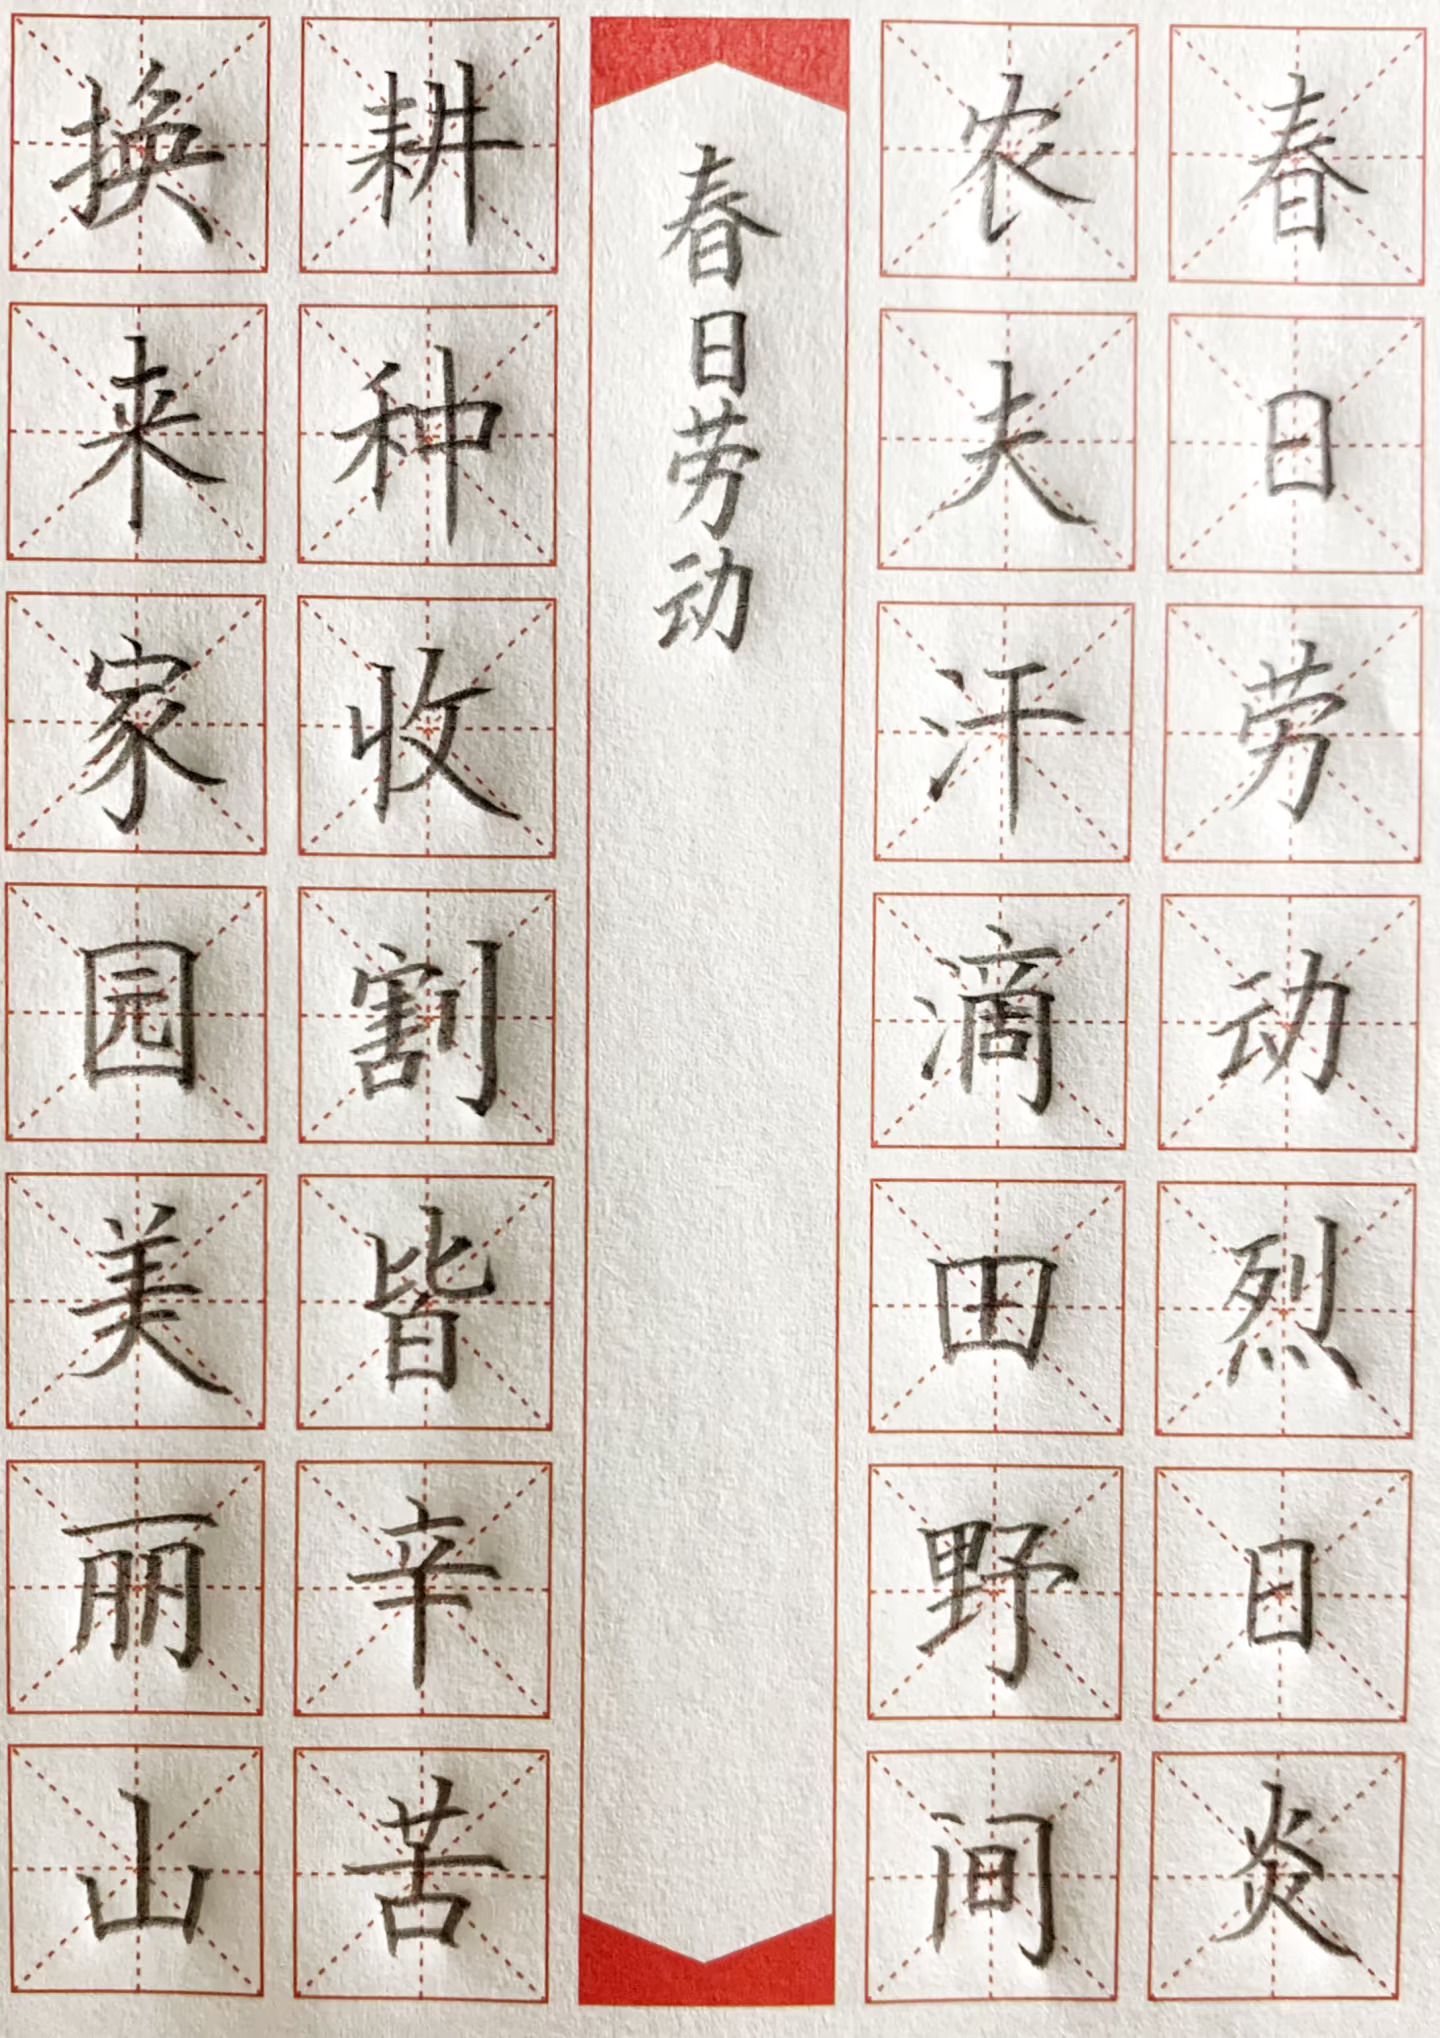 春日劳动烈日炎
农夫汗滴田野间
春日劳动
耕种收割皆辛苦
换来家园美丽山